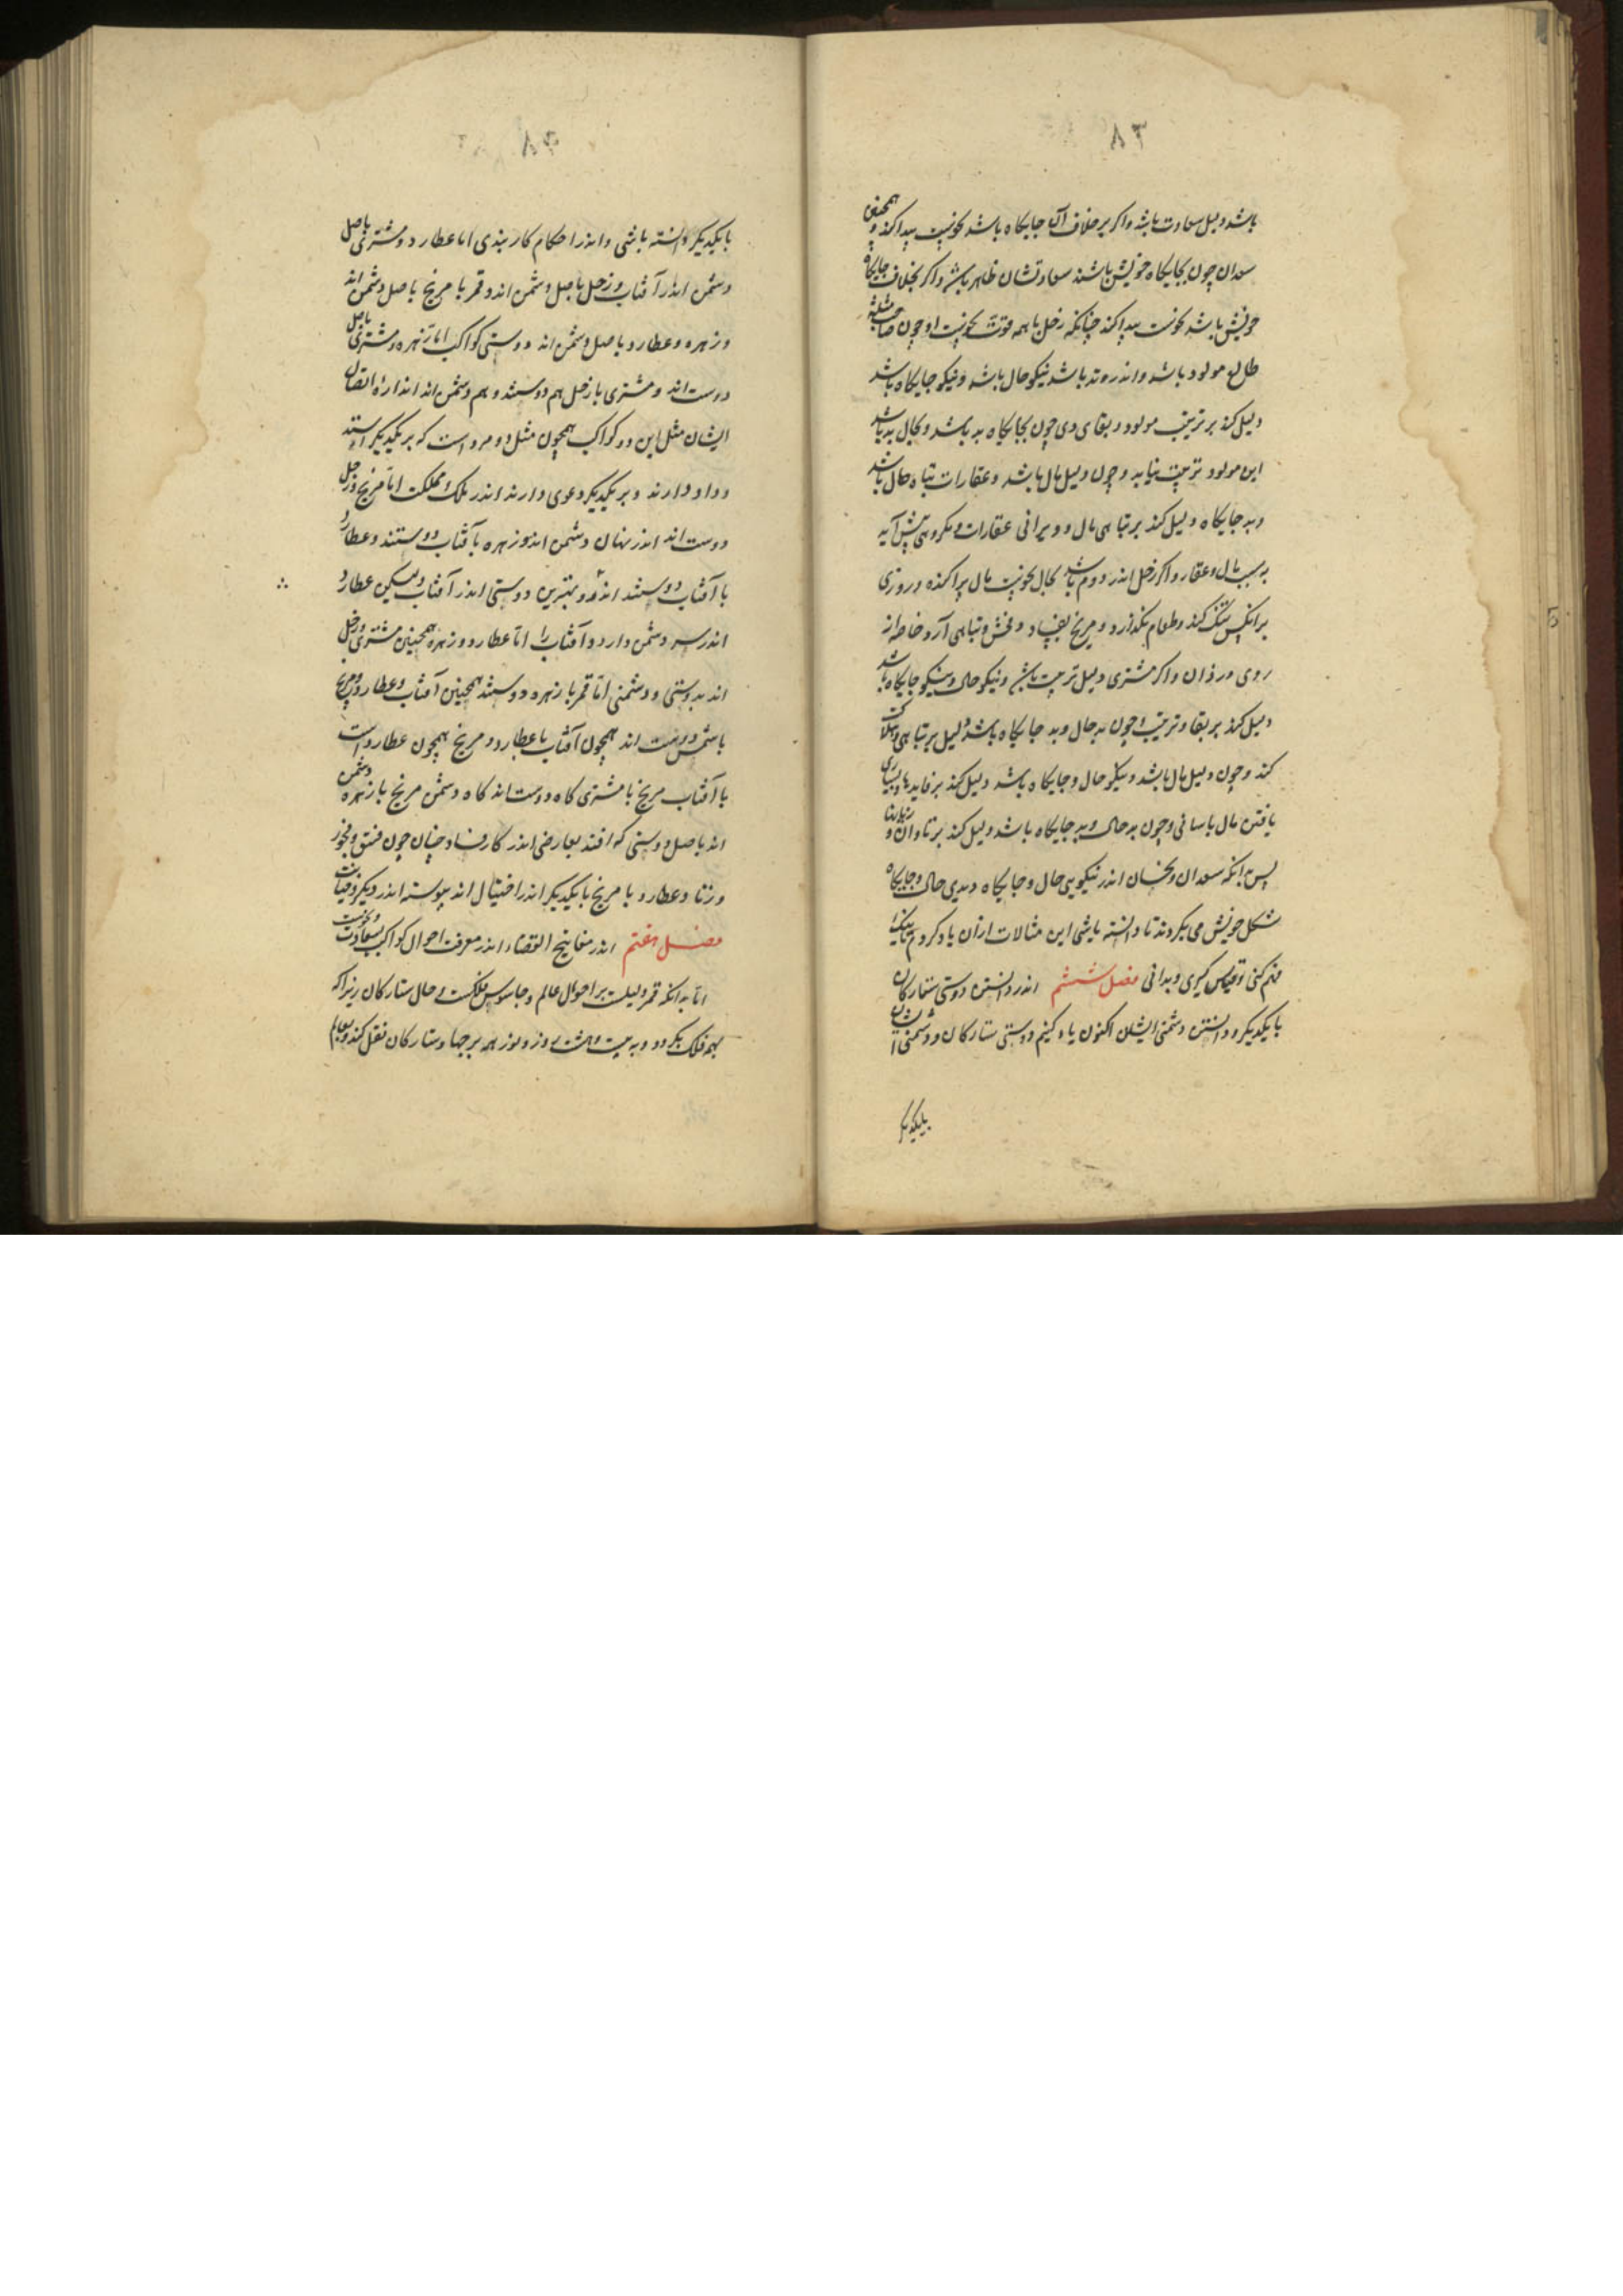 ۸۳
باشد دلیل سعادت باشد واکر برخلاف آن جایکاه باشد نحوست پیدا کند و همچنین
سعدان چون بجایکاه خویش باشند سعادتشان ظاهر باشد واکر بخلاف جایکاه
خویش باشد نحوست پیدا کند چنانکه زحل با همه قوت نحوست او چون صاحب مثلثه
طالع مولود باشد واندر وتد باشد نیکو حال باشد ونیکو جایکاه باشد
دلیل کند بر تربیت مولود و بقای وی چون بجایکاه بد باشد وبحال بد باشد
این مولود تربیت نیابد و چون دلیل مال باشد وعقارات تباه حال باشد
وبد جایکاه دلیل کند بر تباهی مال و ویرانی عقارات ومکروهی پیش آید
بسبب مال وعقار واکر زحل اندر دوم باشد بحال نحوست مال پراکنده وروزی
برانکس تنک کند وطعام نکذارد ومریخ بفساد وفحش وتباهی آرد خاصه از
روی دزدان واکر مشتری دلیل تربیت باشد ونیکو حال ونیکو جایکاه باشد
دلیل کند بر بقا وتربیت وچون بد حال وبد جایکاه باشد دلیل بر تباهی وهلاکت
کند وچون دلیل مال باشد ونیکو حال وجایکاه باشد دلیل کند بر فایدها وبسیاری
یافتن مال باسانی وچون بد حال وبد جایکاه باشد دلیل کند بر تاوان و زیانها
پس بدانکه سعدان ونحسان اندر نیکویی حال وجایکاه وبدی حال وجایکاه
شکل خویش می بکردند تا دانسته باشی این مثالات ازان یاد کردم تا نیک
فهم کنی وقیاس کیری وبدانی فصل ششم اندر دانستن دوستی ستارکان
با یکدیکر ودانستن دشمنی ایشان اکنون یاد کنیم دوستی ستارکان ودشمنی ایشان
بایکدیکر
با یکدیکر دانسته باشی واندر احکام کار بندی اما عطارد ومشتری باصل
دشمن اند آفتاب وزحل باصل دشمن اند وقمر با مریخ باصل دشمن اند
وزهره وعطارد باصل دشمن اند ودوستی کواکب اما زهره ومشتری باصل
دوست اند ومشتری با زحل هم دوستند وهم دشمن اند اندازه اتصال
ایشان مثل این دو کواکب همچون مثل دو مرد است که بر یکدیکر
وداد دارند وبر یکدیکر دعوی دارند اندر ملک ومملکت اما مریخ وزحل
دوست اند اندر نهان دشمن اند وزهره با آفتاب دوستند وعطارد
با آفتاب دوستند وبهترین دوستی اندر آفتاب ولیکن عطارد
اندر سر دشمن دارد آفتاب را اما عطارد وزهره همچنین مشتری وزحل
اند بدوستی ودشمنی اما قمر با زهره دوستند همچنین آفتاب وعطارد ومریخ
با شمس دوست اند همچون آفتاب با عطارد ومریخ همچون عطارد است
با آفتاب مریخ با مشتری کاه دوست اند کاه دشمن مریخ با زهره دشمن
اند باصل ودوستی که افتد بعارضی اندر کار فساد چنان چون فسق وفجور
وزنا وعطارد با مریخ با یکدیکر اندر احتیال اند پیوسته اندر دیکر وخیانت
فصل هفتم اندر مفاتیح القضاء اندر معرفت احوال کواکب بسعادت ونحوست
اما بدانکه قمر دلیلست بر احوال عالم وجاسوس فلکست وحال ستارکان زیراکه
بهمه فلک بکردد وبه بیست وهشت روز وبوز همه برجها وستارکان نقل کند وبعالم